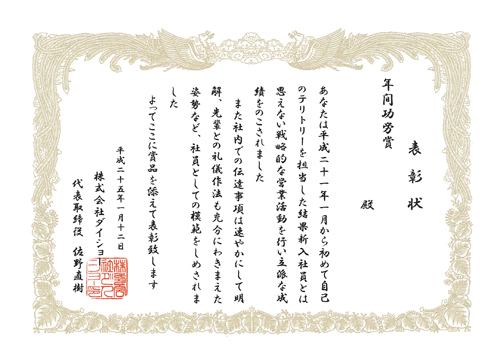 表彰状
年间功労賞
殿
あなたは平成二十一年一月から初めて自己
のテリトリーを担当した結果新入社員とは
思えない戦略的な営業活動を行い立派な成
績をのこされました
また社内での伝達事項は速やかにして明
解、先輩との礼儀作法も充分にわきまえた
姿勢など、社員としての模範をしめされま
した
よってここに賞品を添えて表彰致します
平成二十五年一月十二日
株式会社ダイショー
代表取締役 佐野直樹